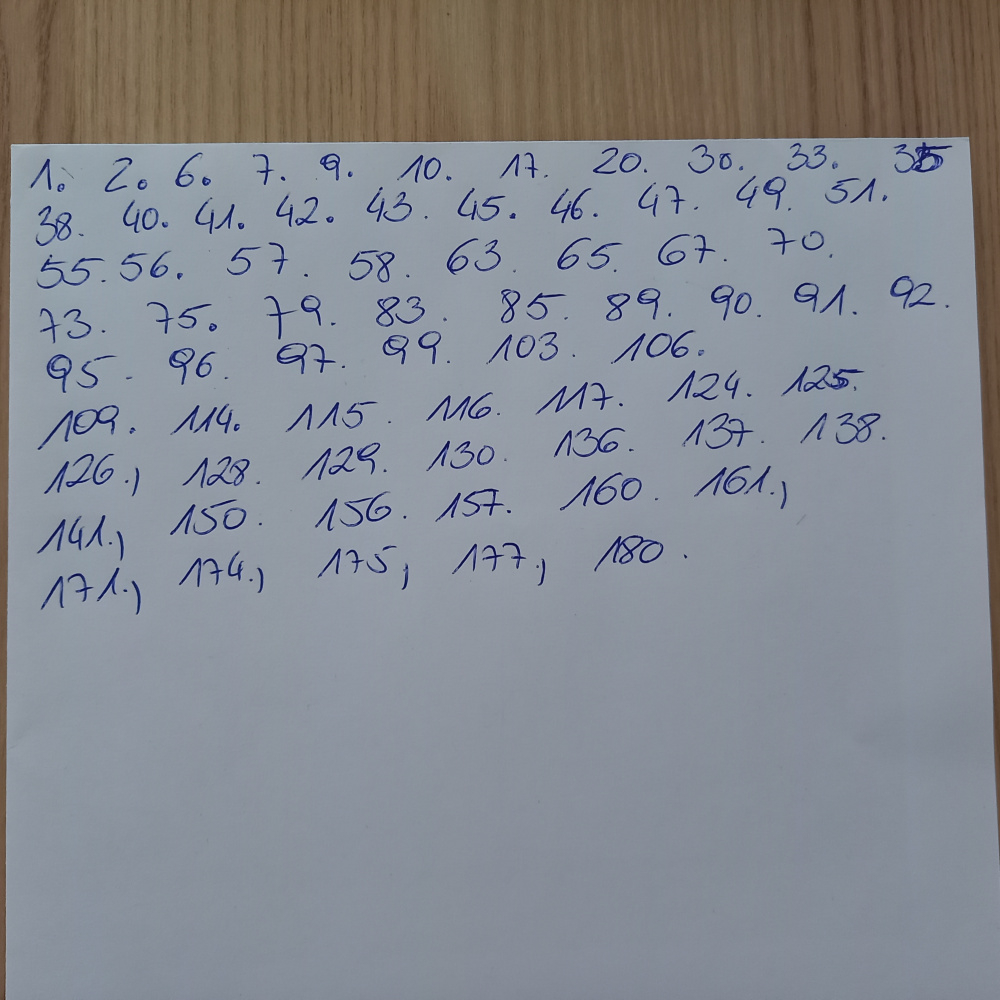 1. 2. 6. 7. 9. 10. 17. 20. 30. 33. 35
38. 40. 41. 42. 43. 45. 46. 47. 49. 51.
55. 56. 57. 58. 63. 65. 67. 70.
73. 75. 79. 83. 85. 89. 90. 91. 92.
95. 96. 97. 99. 103. 106.
109. 114. 115. 116. 117. 124. 125.
126., 128. 129. 130. 136. 137. 138.
141., 150. 156. 157. 160. 161.,
171., 174., 175, 177, 180.